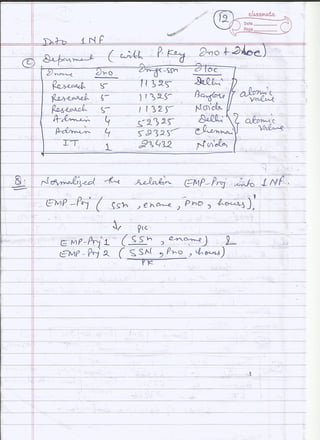 12
classmate
Date
Page
Into 1NF
(c) Department (with P.Key Dno + Dloc)
Dname Dno Dmgr-ssn Dloc
Research 5 11325 Delhi
Research 5 11325 Banglore
Research 5 11325 Noida
Admin 4 52325 Delhi
Admin 4 52325 Chennai
IT 1 23432 Noida
atomic value
atomic value
Q: Normalized the relation EMP-Proj into 1NF.
EMP-Proj ( ssn , ename , Pno , hours)
↓ PK
EMP-Prj 1 ( SSN , ename) &
EMP-Prj 2 ( SSN , Pno , hours)
PK